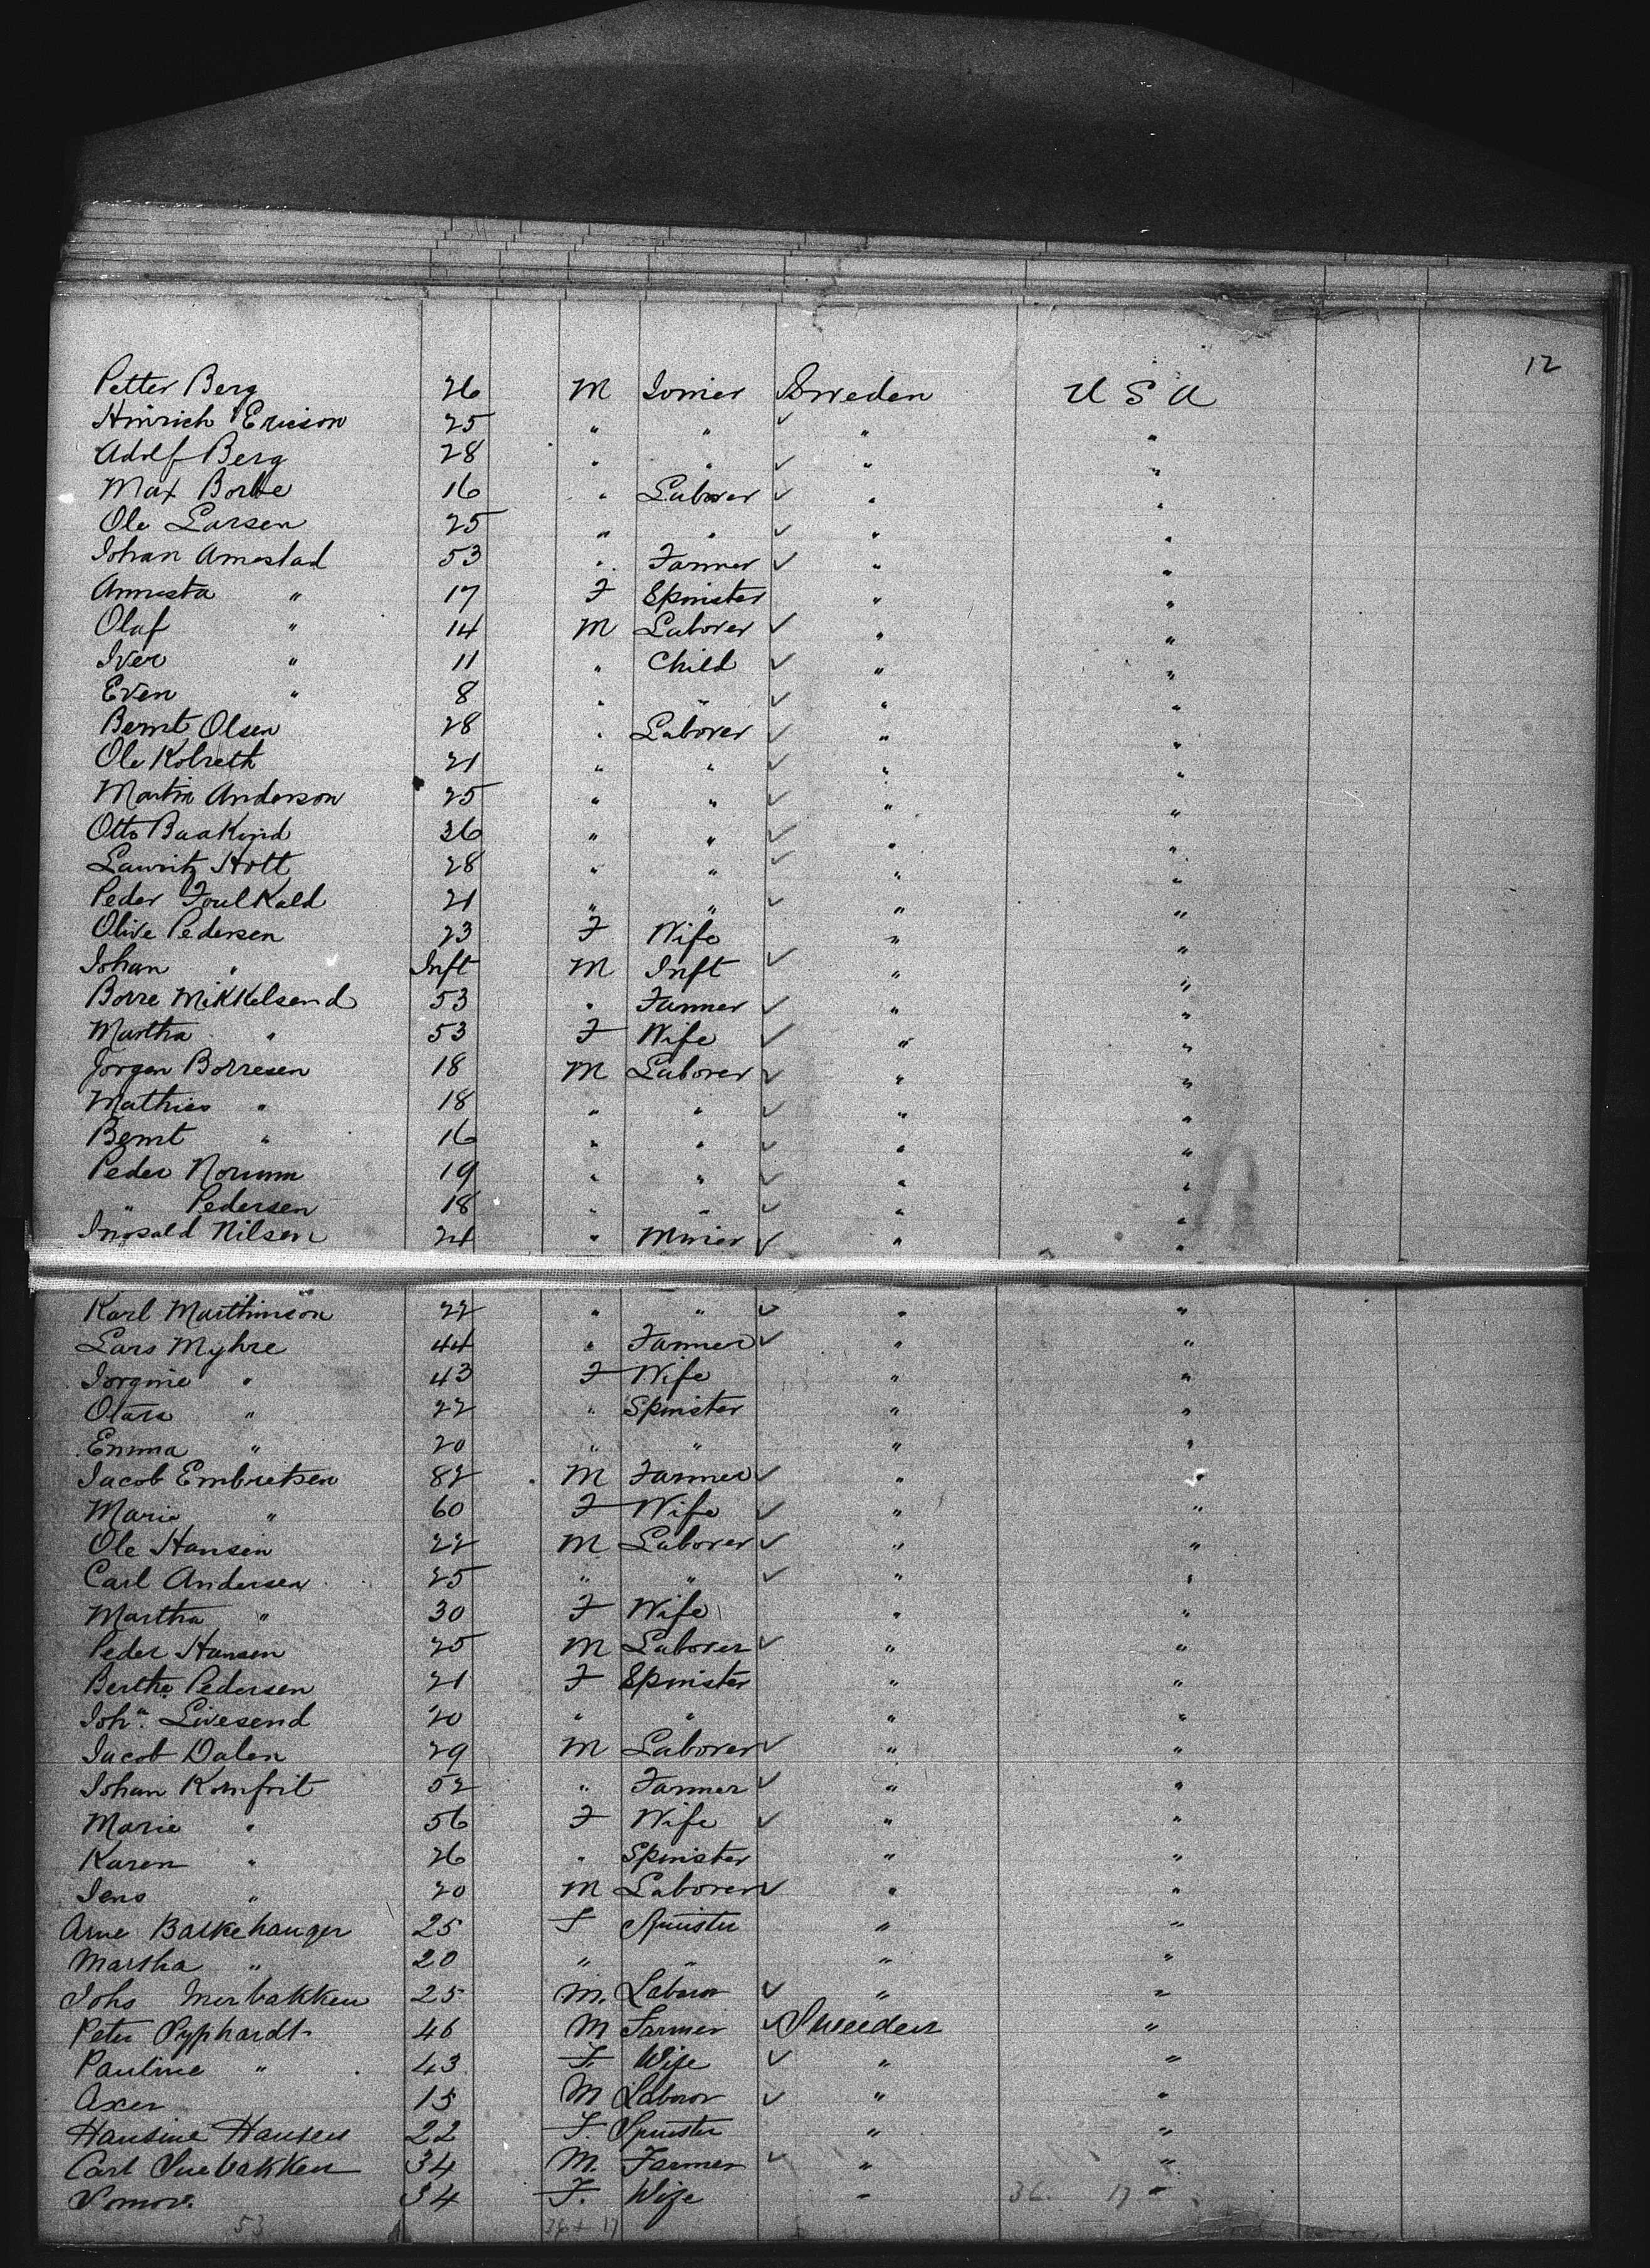 12
Petter Berg 26 M Joiner Sweden U S A
Hinrich Ericson 25 " " ✓ " "
Adolf Berg 28 " " ✓ " "
Max Borbe 16 " Laborer ✓ " "
Ole Larsen 25 " " ✓ " "
Johan Amestad 53 " Farmer ✓ " "
Annesta " 17 F Spinster " "
Olaf " 14 M Laborer ✓ " "
Iver " 11 " Child ✓ " "
Even " 8 " " ✓ " "
Bernt Olsen 28 " Laborer ✓ " "
Ole Kolreth 21 " " ✓ " "
Martin Anderson 25 " " ✓ " "
Otto 26 " " ✓ " "
Lauritz Holt 28 " " ✓ " "
Peder FoulKald 21 " " ✓ " "
Olive Pedersen 23 F Wife " "
Johan " Inft M Inft ✓ " "
Borre MikKelsend 53 " Farmer ✓ " "
Martha " 53 F Wife ✓ " "
Jorgen Borresen 18 M Laborer ✓ " "
Mathies " 18 " " ✓ " "
Bernt " 16 " " ✓ " "
Peder Norumm 19 " " ✓ " "
" Pedersen 18 " " ✓ " "
Nilsen 24 " Minier ✓ " "
Karl Marthinson 22 " " ✓ " "
Lars Myhre 44 " Farmer ✓ " "
Jorgine " 43 F Wife " "
Otara " 22 " Spinster " "
Emma " 20 " " " "
Jacob Embretsen 82 M Farmer ✓ " "
Marie " 60 F Wife ✓ " "
Ole Hansen 22 M Laborer ✓ " "
Carl Andersen 25 " " ✓ " "
Martha " 30 F Wife " "
Peder Hansen 25 M Laborer ✓ " "
Berthe Pedersen 21 F Spinster " "
John. Livesend 20 " " " "
Jacob Dalen 29 M Laborer ✓ " "
Johan Kornfrit 52 " Farmer ✓ " "
Marie " 56 F Wife ✓ " "
Karen " 26 " Spinster " "
Jens " 20 M Laborer ✓ " "
Arne Balkehauger 25 F Spinster " "
Martha " 20 " " " "
Johs Merbakken 25 M. Laboror ✓ " "
Peter Pyphardt 46 M Farmer ✓ Sweeden "
Pauline " 43 F. Wife ✓ " "
Axer 15 M Laboror ✓ " "
Hansine Hansen 22 F. Spinster " "
Carl Suebakken 34 M. Farmer ✓ " "
34 F. Wife " 36. 17 "
53 36 + 17